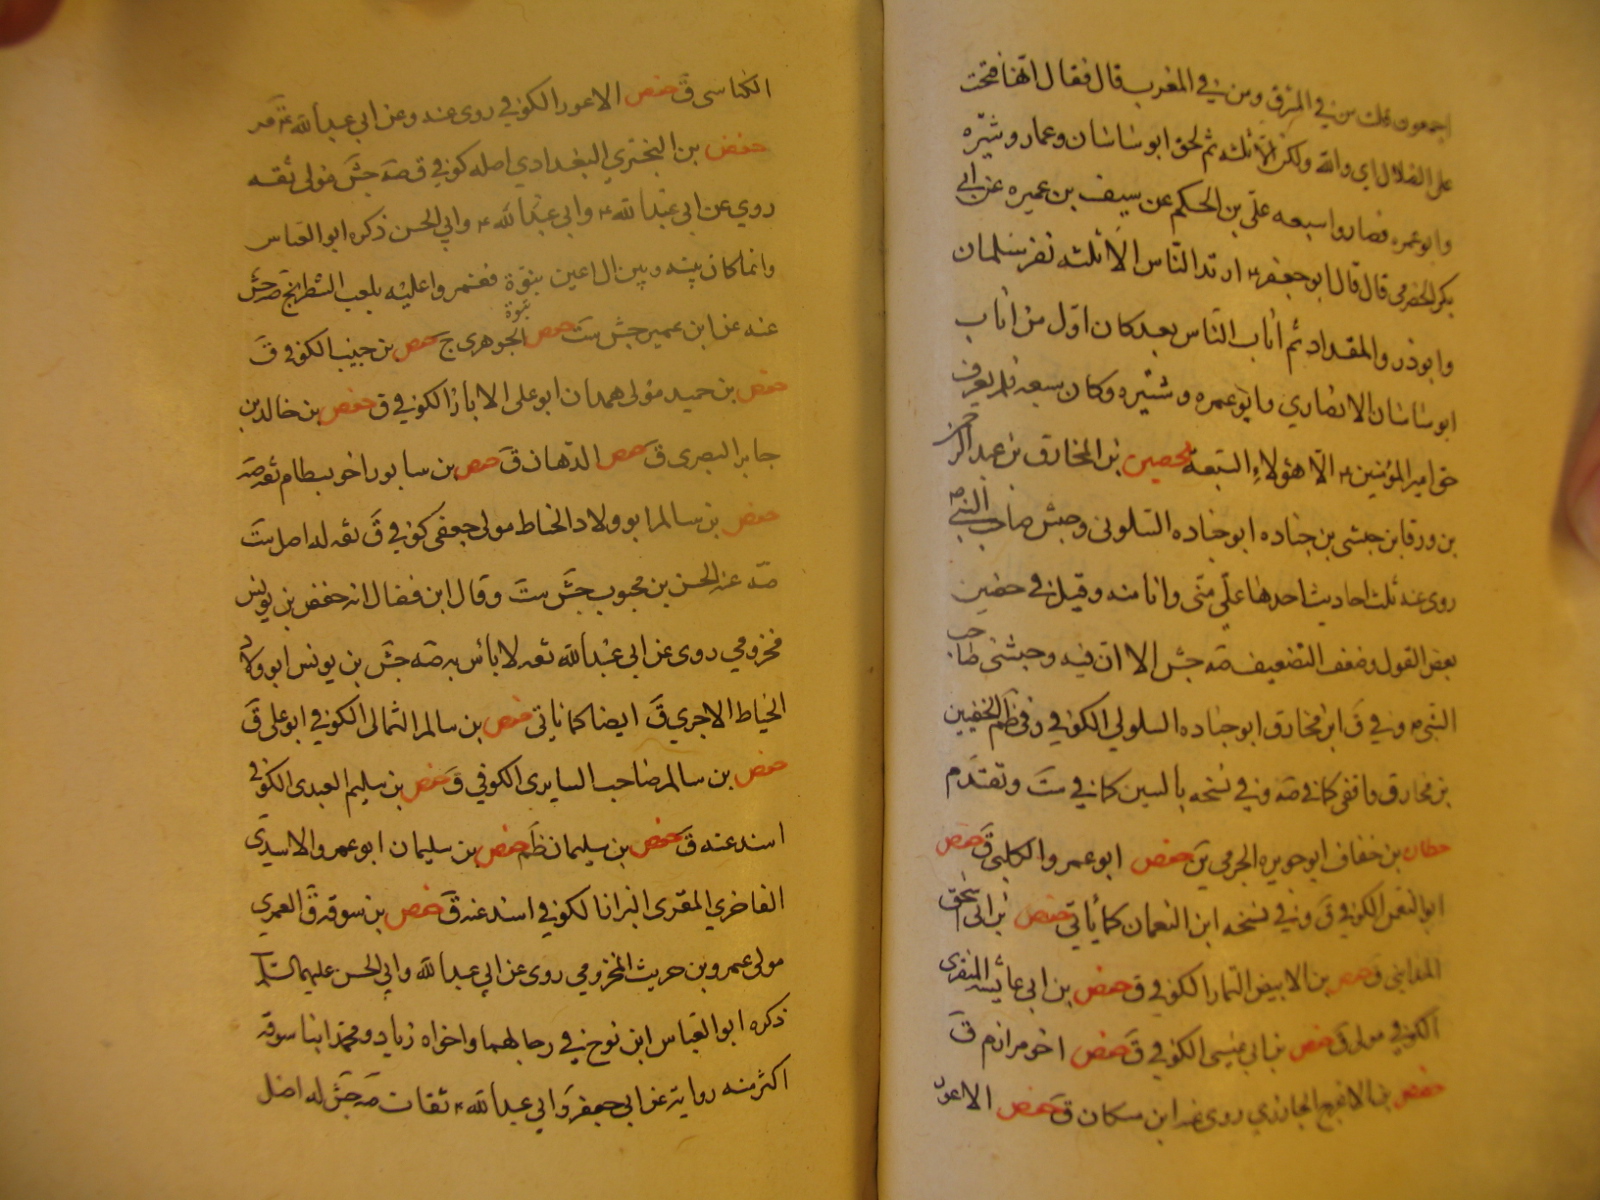 اجمعون هلك من في المشرق ومن في المغرب قال فقال انها فتحت
على الضلال اي والله ولكن الا ثلثه ثم لحق ابو ساسان وعمار وشتيره
وابو عمره فصاروا سبعه علي بن الحكم عن سيف بن عميره عن ابي
بكر الحضرمي قال قال ابو جعفر ارتد الناس الا ثلثه نفر سلمان
وابوذر والمقداد ثم اناب الناس بعد كان اول من اناب
ابو ساسان الانصاري وابو عمره وشتيره وكان سبعه فلم يعرف
حق امير المؤمنين الا هؤلاء السبعة حصين بن المخارق بن عبد الرحمن
بن ورقا بن حبشى بن جناده ابو جناده السلولى وحبش صاحب النبي ص
روى عنه ثلث احاديث احدها علي منى وانا منه وقيل في حصين
بعض القول وضعف التضعيف صه جش الا ان فيه وحبشى صاحب
النبي وفي ق ابن مخارق ابو جناده السلولي الكوفي وفي ظم الحصين
بن مخارق واقفى كما في صه وفي نسخه بالسين كما في ست وتقدم
حطان بن خفاف ابو جويره الجرمي ين حفص ابو عمرو الكلبي ق حفص
ابو النعمن الكوفي ق وفي نسخه ابن النعمان كما يأتي حفص بن ابي اسحق
المدايني ق حفص بن الابيض التمار الكوفي ق حفص بن ابي عائشه المنقرى
الكوفي مولى ق حفص بن ابي عيسى الكوفي ق حفص اخو مرازم ق
حفص بن الا الجازري روى عنه ابن مسكان ق حفص الاعور
الكناسى ق حفص الاعور الكوفي روى عنه وعن ابي عبدالله ق قر
حفص بن البختري البغدادي اصله كوفي ق صه جش مولى ثقه
روى عن ابي عبدالله وابي عبدالله وابي الحسن ذكره ابو العباس
وانما كان بينه وبين ال اعين نبوة فغمزوا عليه بلعب الشطرنج صه جش
نبوة
عنه عن ابن عمير جش ست حفص الجوهرى ج حفص بن حبيب الكوفي ق
حفص بن حميد مولى همدان ابو على الابار الكوفي ق حفص بن خالد بن
جابر البصرى ق حفص الدهان ق حفص بن سابور اخو بسطام ثقه صه
حفص بن سالم ابو ولاد الحناط مولى جعفى كوفي ق ثقه له اصل ست
صه عنه الحسن بن محبوب جش ست وقال ابن فضال انه حفص بن يونس
مخزومي روى عن ابي عبدالله ثقه لا بأس به صه جش بن يونس ابو ولاد
الحناط الاجري ق ايضا كما ياتي حفص بن سالم الثمالى الكوفي ابو على ق
حفص بن سالم صاحب السابرى الكوفي ق حفص بن سليم العبدى الكوفي
اسند عنه ق حفص بن سليمان ظم حفص بن سليمان ابو عمرو الاسدى
الفاخري المقرى البزاز الكوفي اسند عنه ق حفص بن سوقه ق العمري
مولى عمرو بن حريث المخزومي روى عن ابي عبدالله وابي الحسن عليهما السلام
ذكره ابو العباس ابن نوح في رجالهما واخواه زياد ومحمد ابنا سوقه
اكثر منه رواية عن ابي جعفر وابي عبدالله ثقات صه جش له اصل